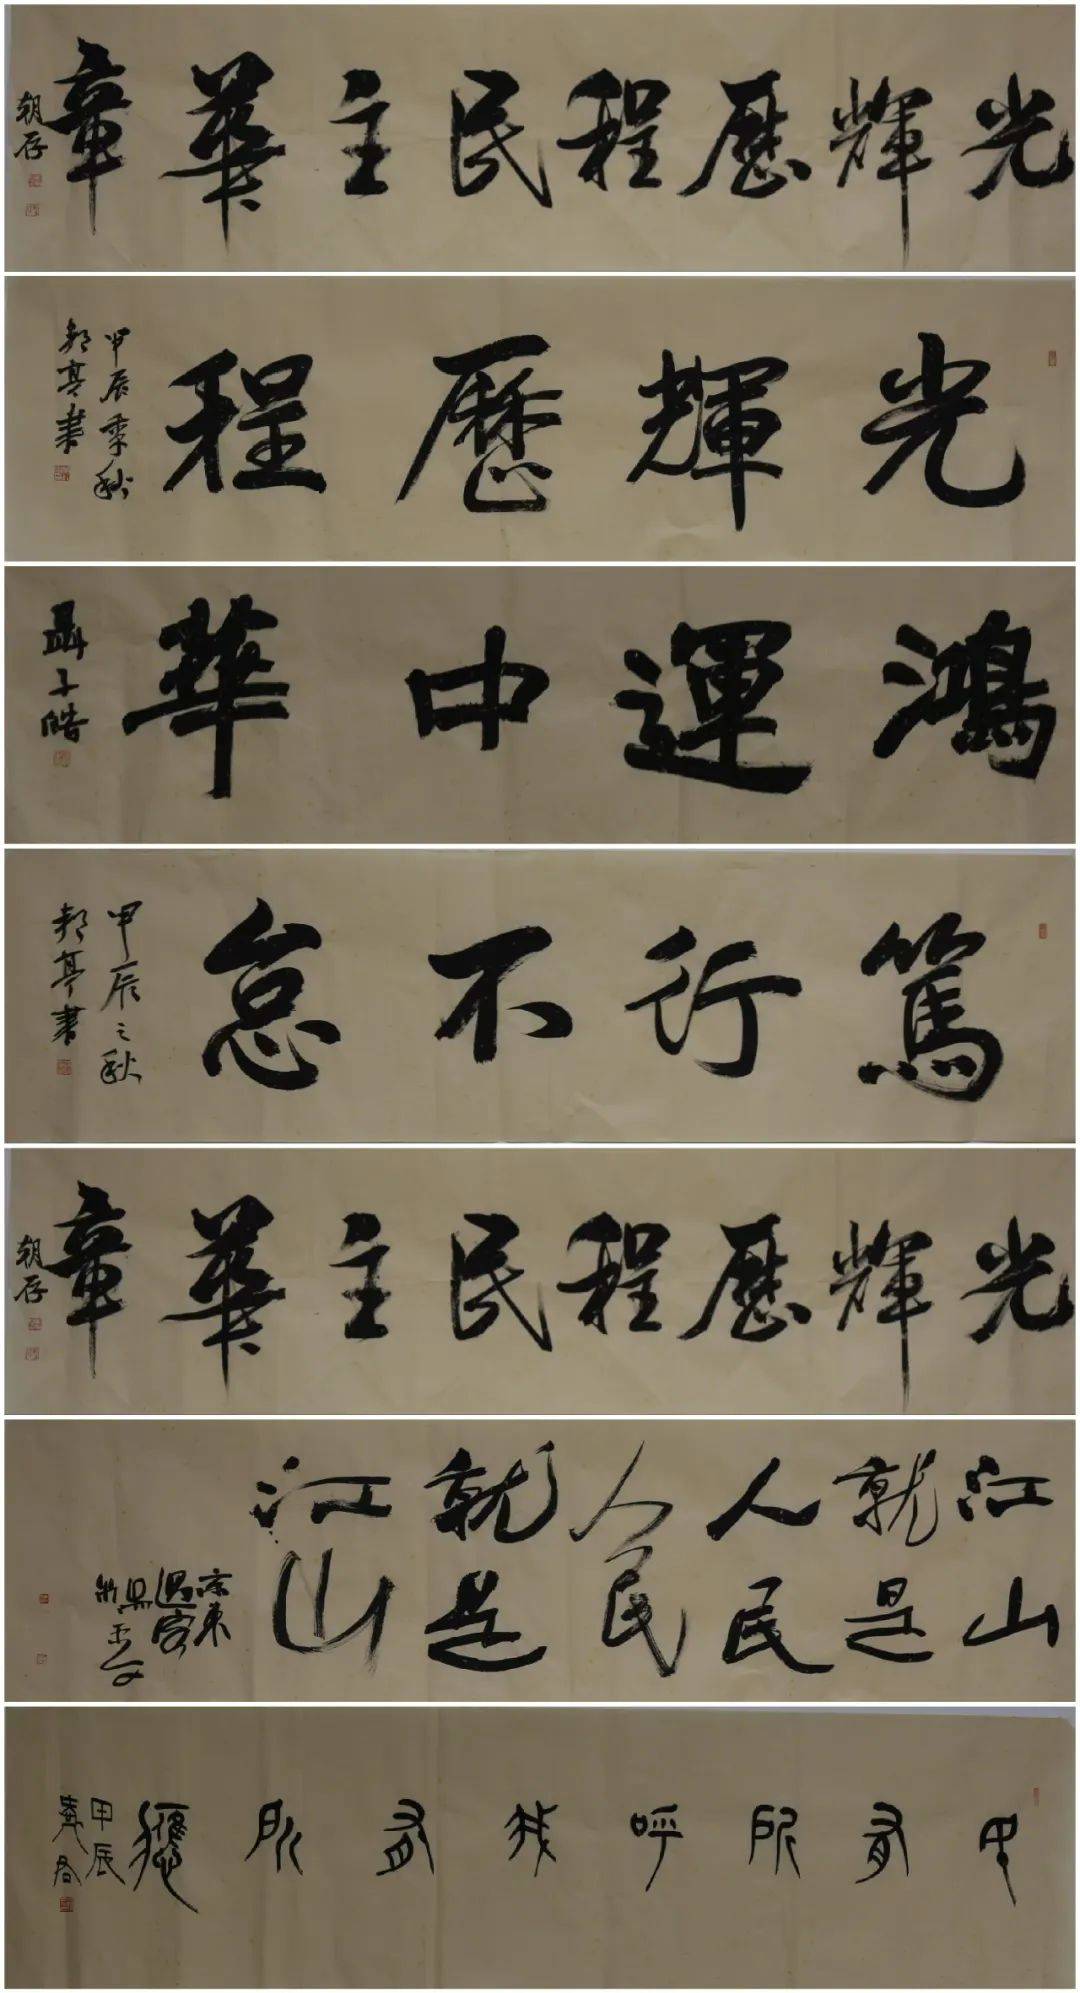 光輝歷程民主華章
朝存
光輝歷程
甲辰季秋
亭書
鴻運中華
聶子皓
篤行不怠
甲辰之秋
亭書
光輝歷程民主華章
朝存
江山
就是
人民
人民
就是
江山
京東
過客
民有所呼我有所應
甲辰